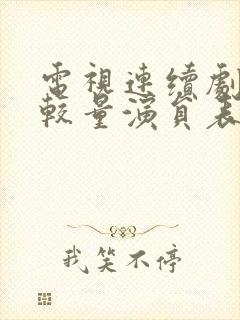 電視連續劇
較量演員表
我笑不停